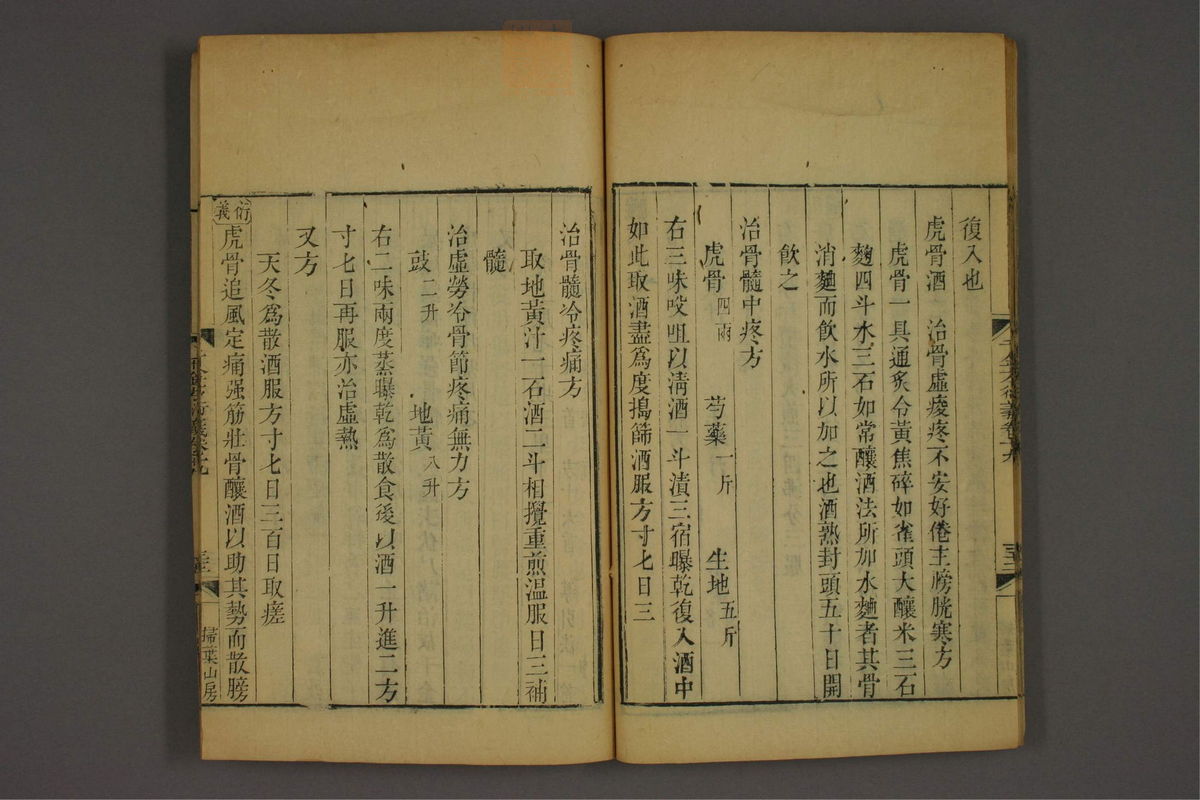 復入也
虎骨酒 治骨虛痠疼不安好倦主膀胱寒方
虎骨一具通炙令黃焦碎如雀頭大釀米三石
麴四斗水三石如常釀酒法所加水麴者其骨
消麴而飲水所以加之也酒熟封頭五十日開
飲之
治骨髓中疼方
虎骨四兩 芍藥一斤 生地五斤
右三味㕮咀以淸酒一斗漬三宿曝乾復入酒中
如此取酒盡爲度搗篩酒服方寸匕日三
治骨髓冷疼痛方
取地黃汁一石酒二斗相攪重煎溫服日三補
髓
治虛勞冷骨節疼痛無力方
豉二升 地黃八升
右二味兩度蒸曝乾爲散食後以酒一升進二方
寸匕日再服亦治虛熱
又方
天冬爲散酒服方寸匕日三百日取瘥
衍義
虎骨追風定痛强筋壯骨釀酒以助其勢而散膀
掃葉山房